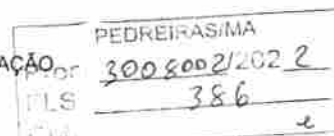 PEDREIRAS/MA
AÇÃO
3008002/2022
FLS 386